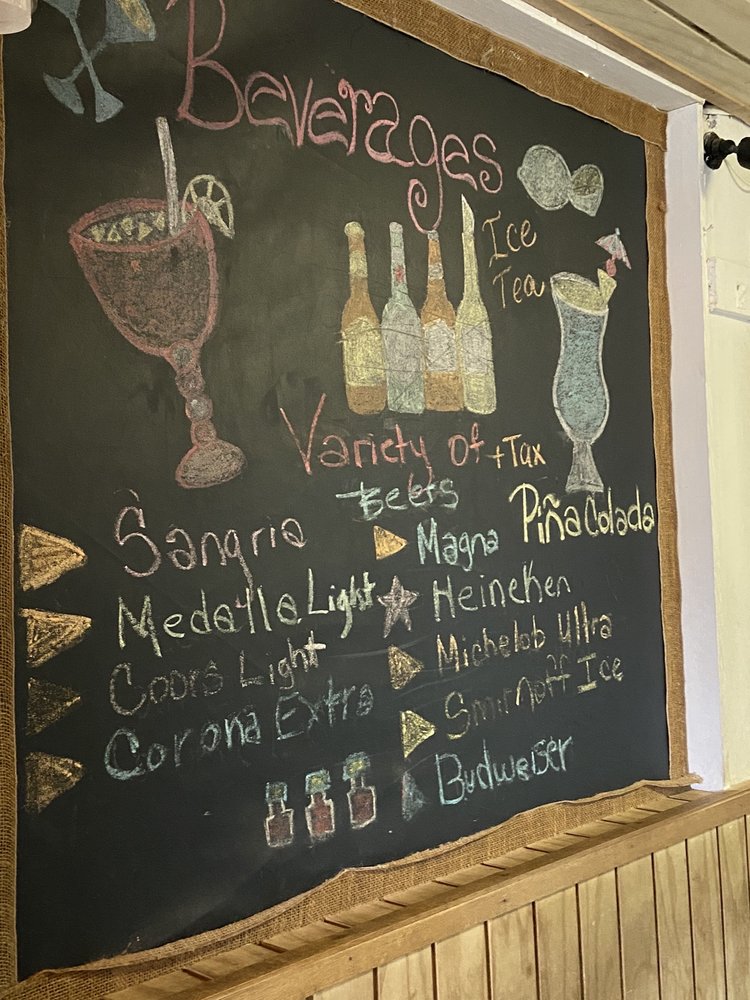 Beverages
Ice
Tea
Variety of + Tax
Beers
Piña Colada
Sangria
Medalla Light
Coors Light
Corona Extra
Magna
Heineken
Michelob Ultra
Smirnoff Ice
Budweiser